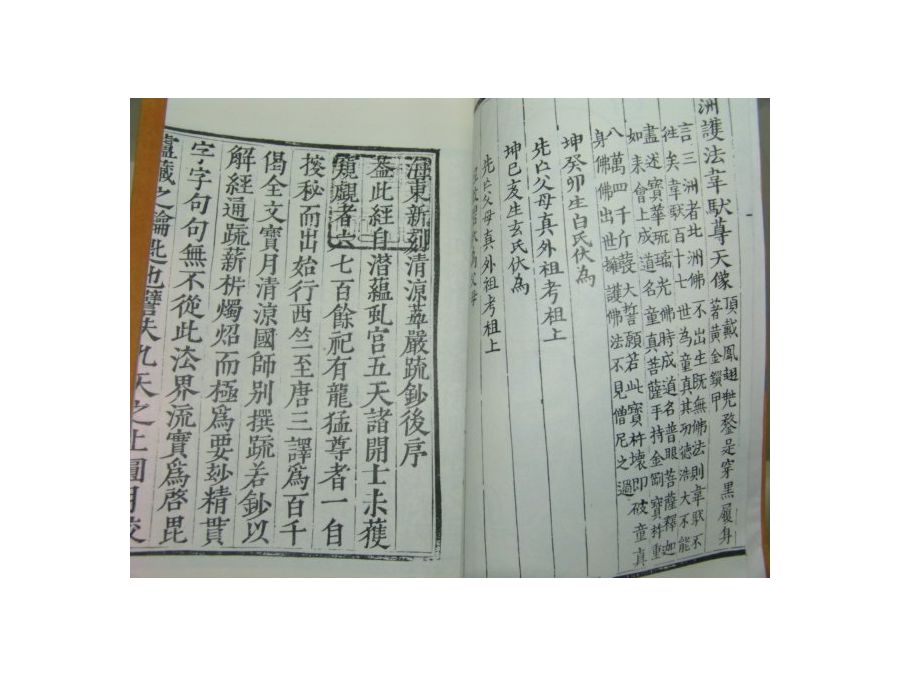 洲護法韋馱尊天像
頂戴鳳翅兠鍪足穿黑履身
著黃金鎖甲
言三洲者北洲佛不出生既無佛法則韋馱不
徃矣韋馱百十七世為童真其功德浩大不能
盡述寶華琉璃光佛時成道名普眼菩薩釋迦
如来會上成道名童真菩薩手持金剛寶杵重
八萬四千斤發大誓願若此寶杵壞即破童真
身佛佛出世擁護佛法不見僧尼之過
坤癸卯生白氏伏為
先亡父母真外祖考祖上
坤己亥生玄氏伏為
先亡父母真外祖考祖上
海東新刻清涼華嚴疏鈔後序
葢此經自潜蘊虬宮五天諸開士未獲
窺覰者六七百餘祀有龍猛尊者一自
按秘而出始行西竺至唐三譯為百千
偈全文寶月清涼國師別撰疏若鈔以
解經通疏薪析燭炤而極為要玅精貫
字字句句無不從此法界流實為啓毘
盧藏之籥匙也譬夫九天之上圓月皎